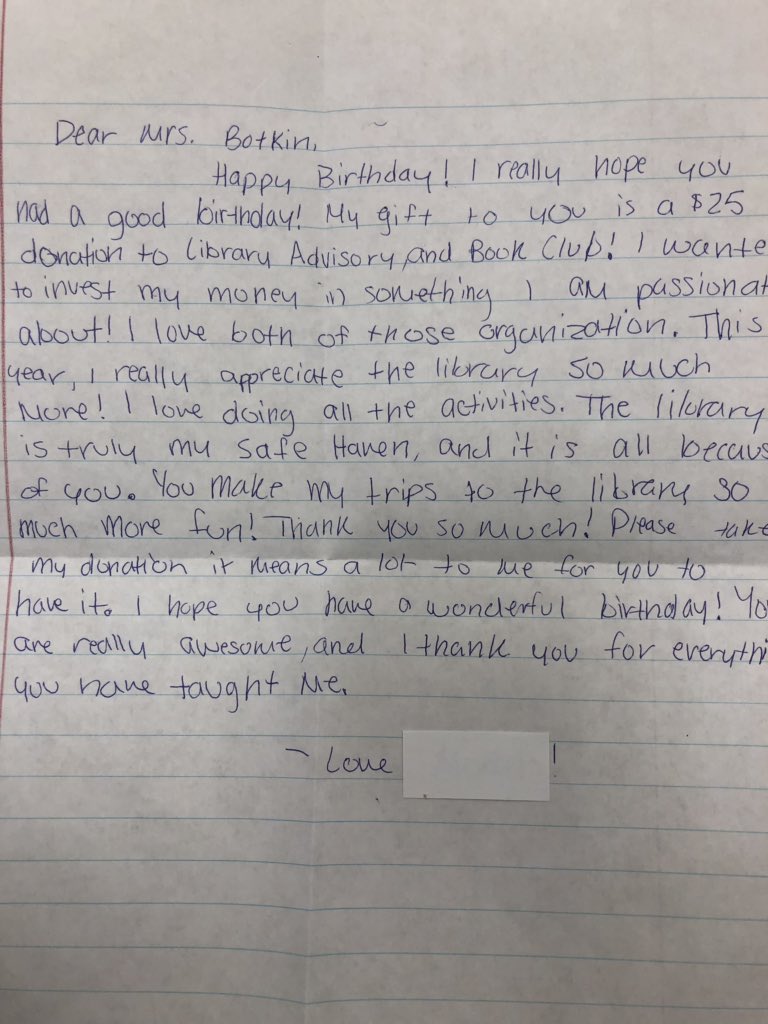 Dear Mrs. Botkin,
Happy Birthday! I really hope you
had a good birthday! My gift to you is a $25
donation to Library Advisory, and Book Club! I wante
to invest my money in something I am passionat
about! I love both of those organization. This
year, I really appreciate the library so much
more! I love doing all the activities. The library
is truly my safe Haven, and it is all becaus
of you. You make my trips to the library so
much more fun! Thank you so much! Please take
my donation it means a lot to me for you to
have it. I hope you have a wonderful birthday! Yo
are really awesome, and I thank you for everythi
you have taught me.
- Love !